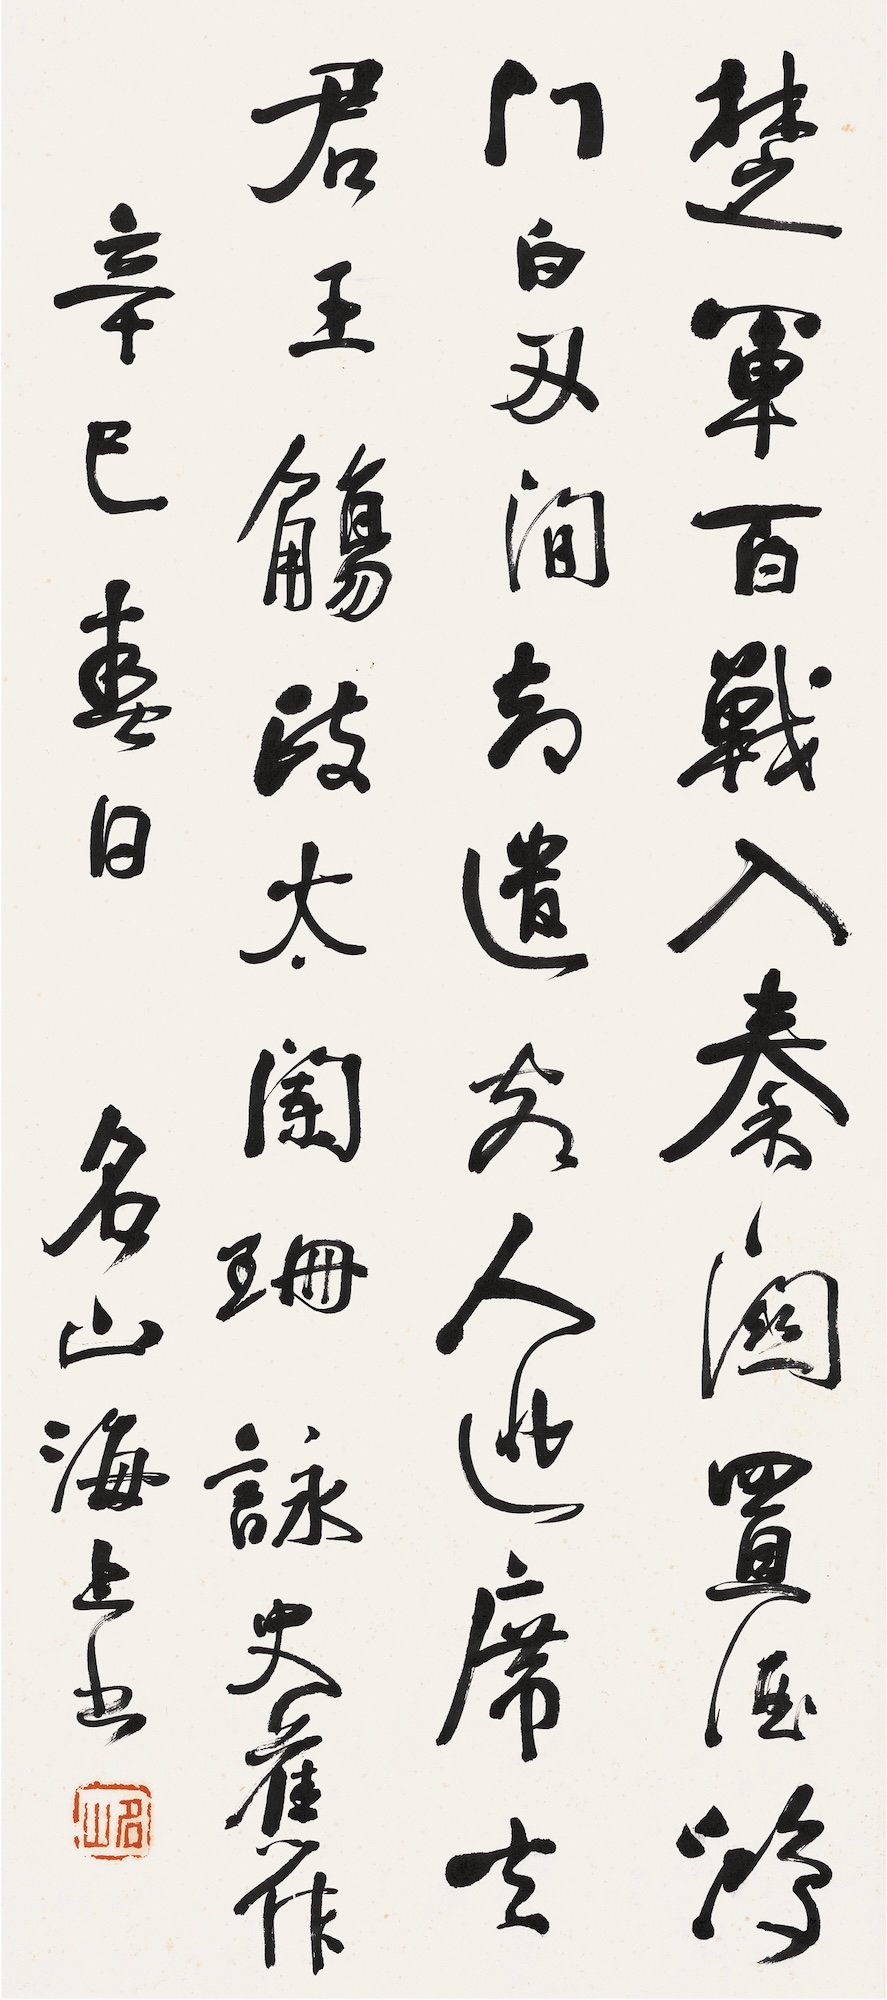 楚軍百戰入秦關置酒鴻
門白刃間却遣故人逃席去
君王觴政太闌珊 詠史舊作
辛巳春日 名山海上书
名山